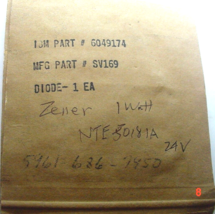 IBM PART # 6049174
MFG PART # SV169
DIODE- 1 EA
Zener 1 Watt
24V
5961